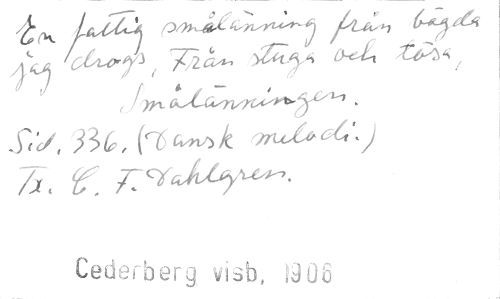 En fattig smålänning från bögda
jag drogs, Från stuga och tösa,
Smålänningen.
Sid. 336. (Dansk melodi.)
Tx. C. F. Dahlgren.
Cederberg visb, 1906